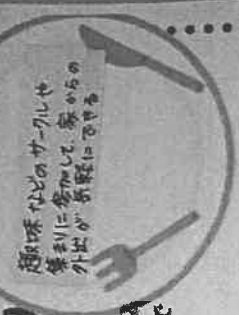 趣味などのサークルや
集まりに参加して、家からの
外出が気軽にできる